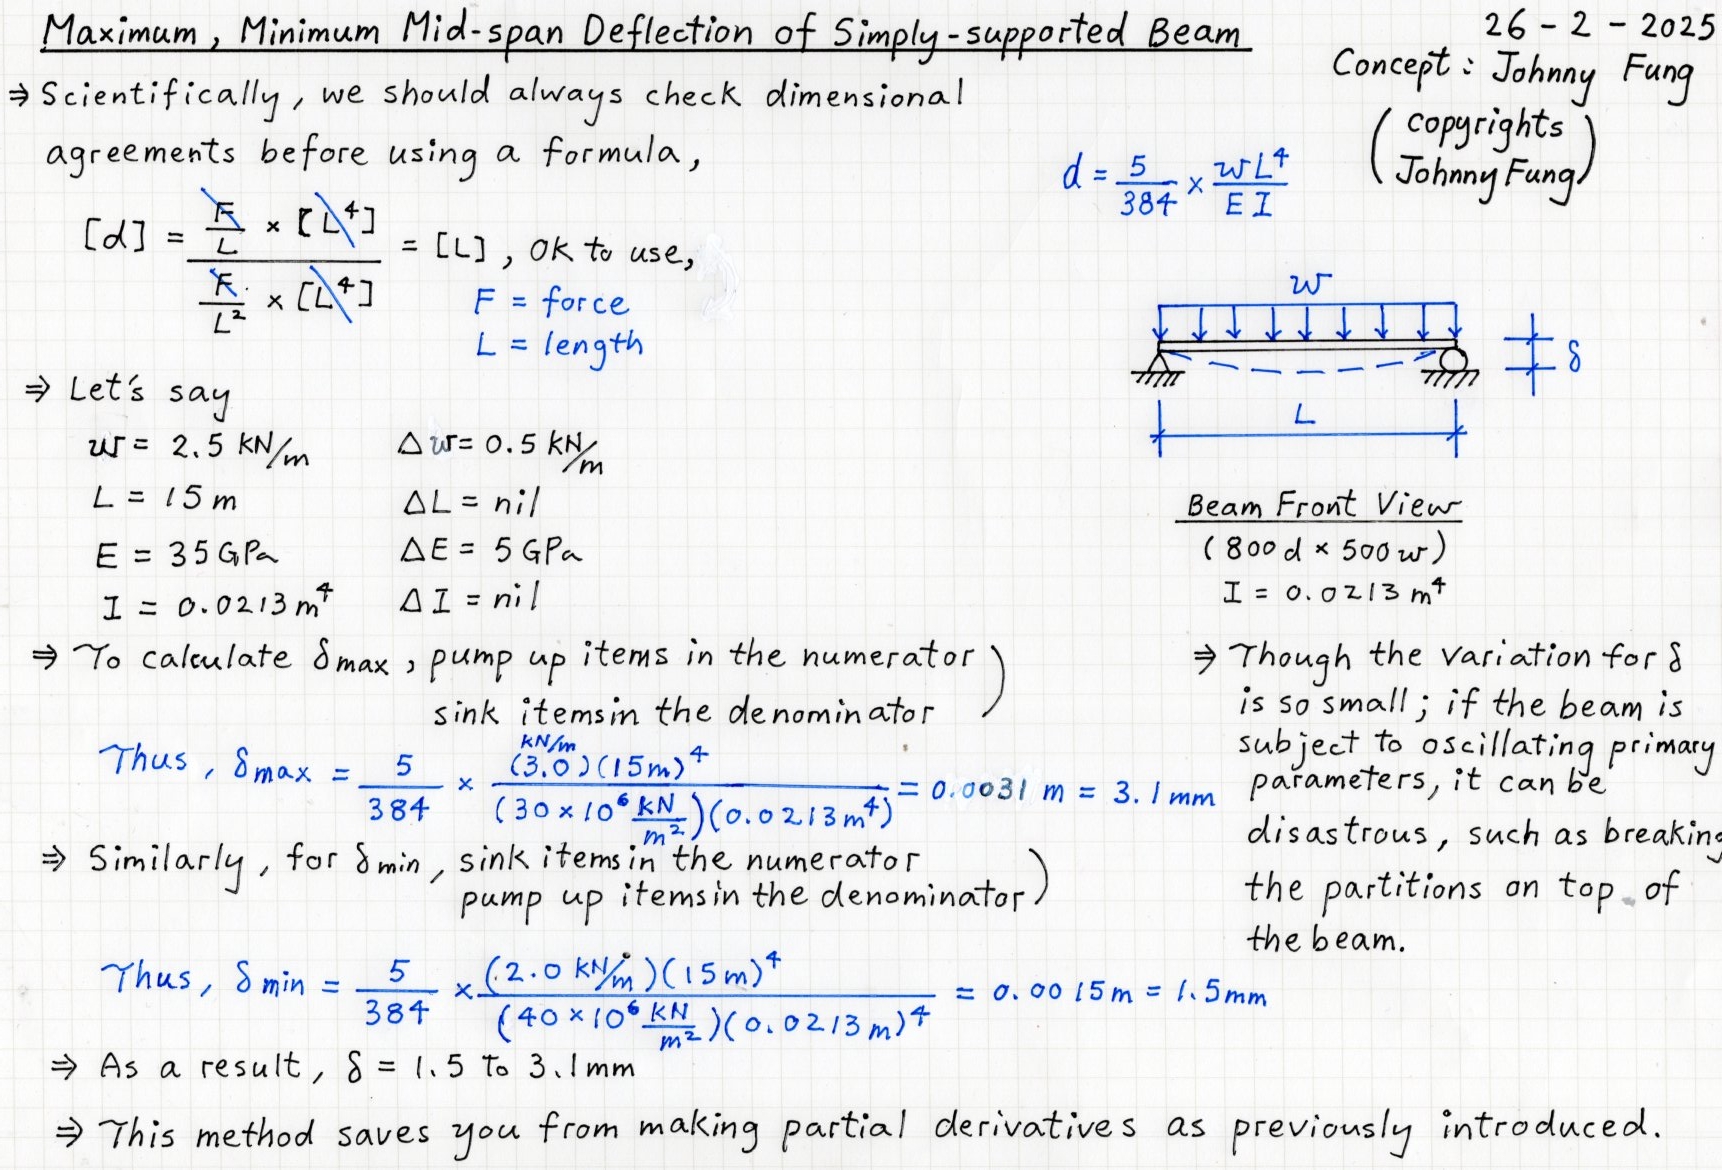 Maximum, Minimum Mid-span Deflection of Simply-supported Beam
26-2-2025
Concept: Johnny Fung
(copyrights Johnny Fung)
⇒ Scientifically, we should always check dimensional
agreements before using a formula,
d = 5/384 × wL⁴/EI
[d] = (F/L × [L⁴]) / (F/L² × [L⁴]) = [L], OK to use,
F = force
L = length
w
δ
L
Beam Front View
(800d × 500w)
I = 0.0213 m⁴
⇒ Let's say
w = 2.5 kN/m Δw = 0.5 kN/m
L = 15 m ΔL = nil
E = 35 GPa ΔE = 5 GPa
I = 0.0213 m⁴ ΔI = nil
⇒ To calculate δmax, pump up items in the numerator
sink items in the denominator)
Thus, δmax = 5/384 × (3.0 kN/m)(15m)⁴ / (30×10⁶ kN/m²)(0.0213m⁴) = 0.0031 m = 3.1 mm
⇒ Similarly, for δmin, sink items in the numerator
pump up items in the denominator)
Thus, δmin = 5/384 × (2.0 kN/m)(15m)⁴ / (40×10⁶ kN/m²)(0.0213m)⁴ = 0.0015m = 1.5mm
⇒ As a result, δ = 1.5 to 3.1mm
⇒ Though the variation for δ
is so small; if the beam is
subject to oscillating primary
parameters, it can be
disastrous, such as breaking
the partitions on top of
the beam.
⇒ This method saves you from making partial derivatives as previously introduced.